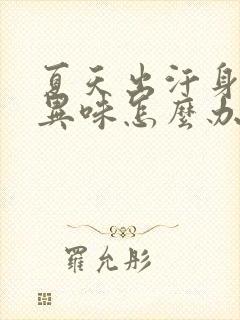 夏天出汗身
異味怎麼办
羅允彤